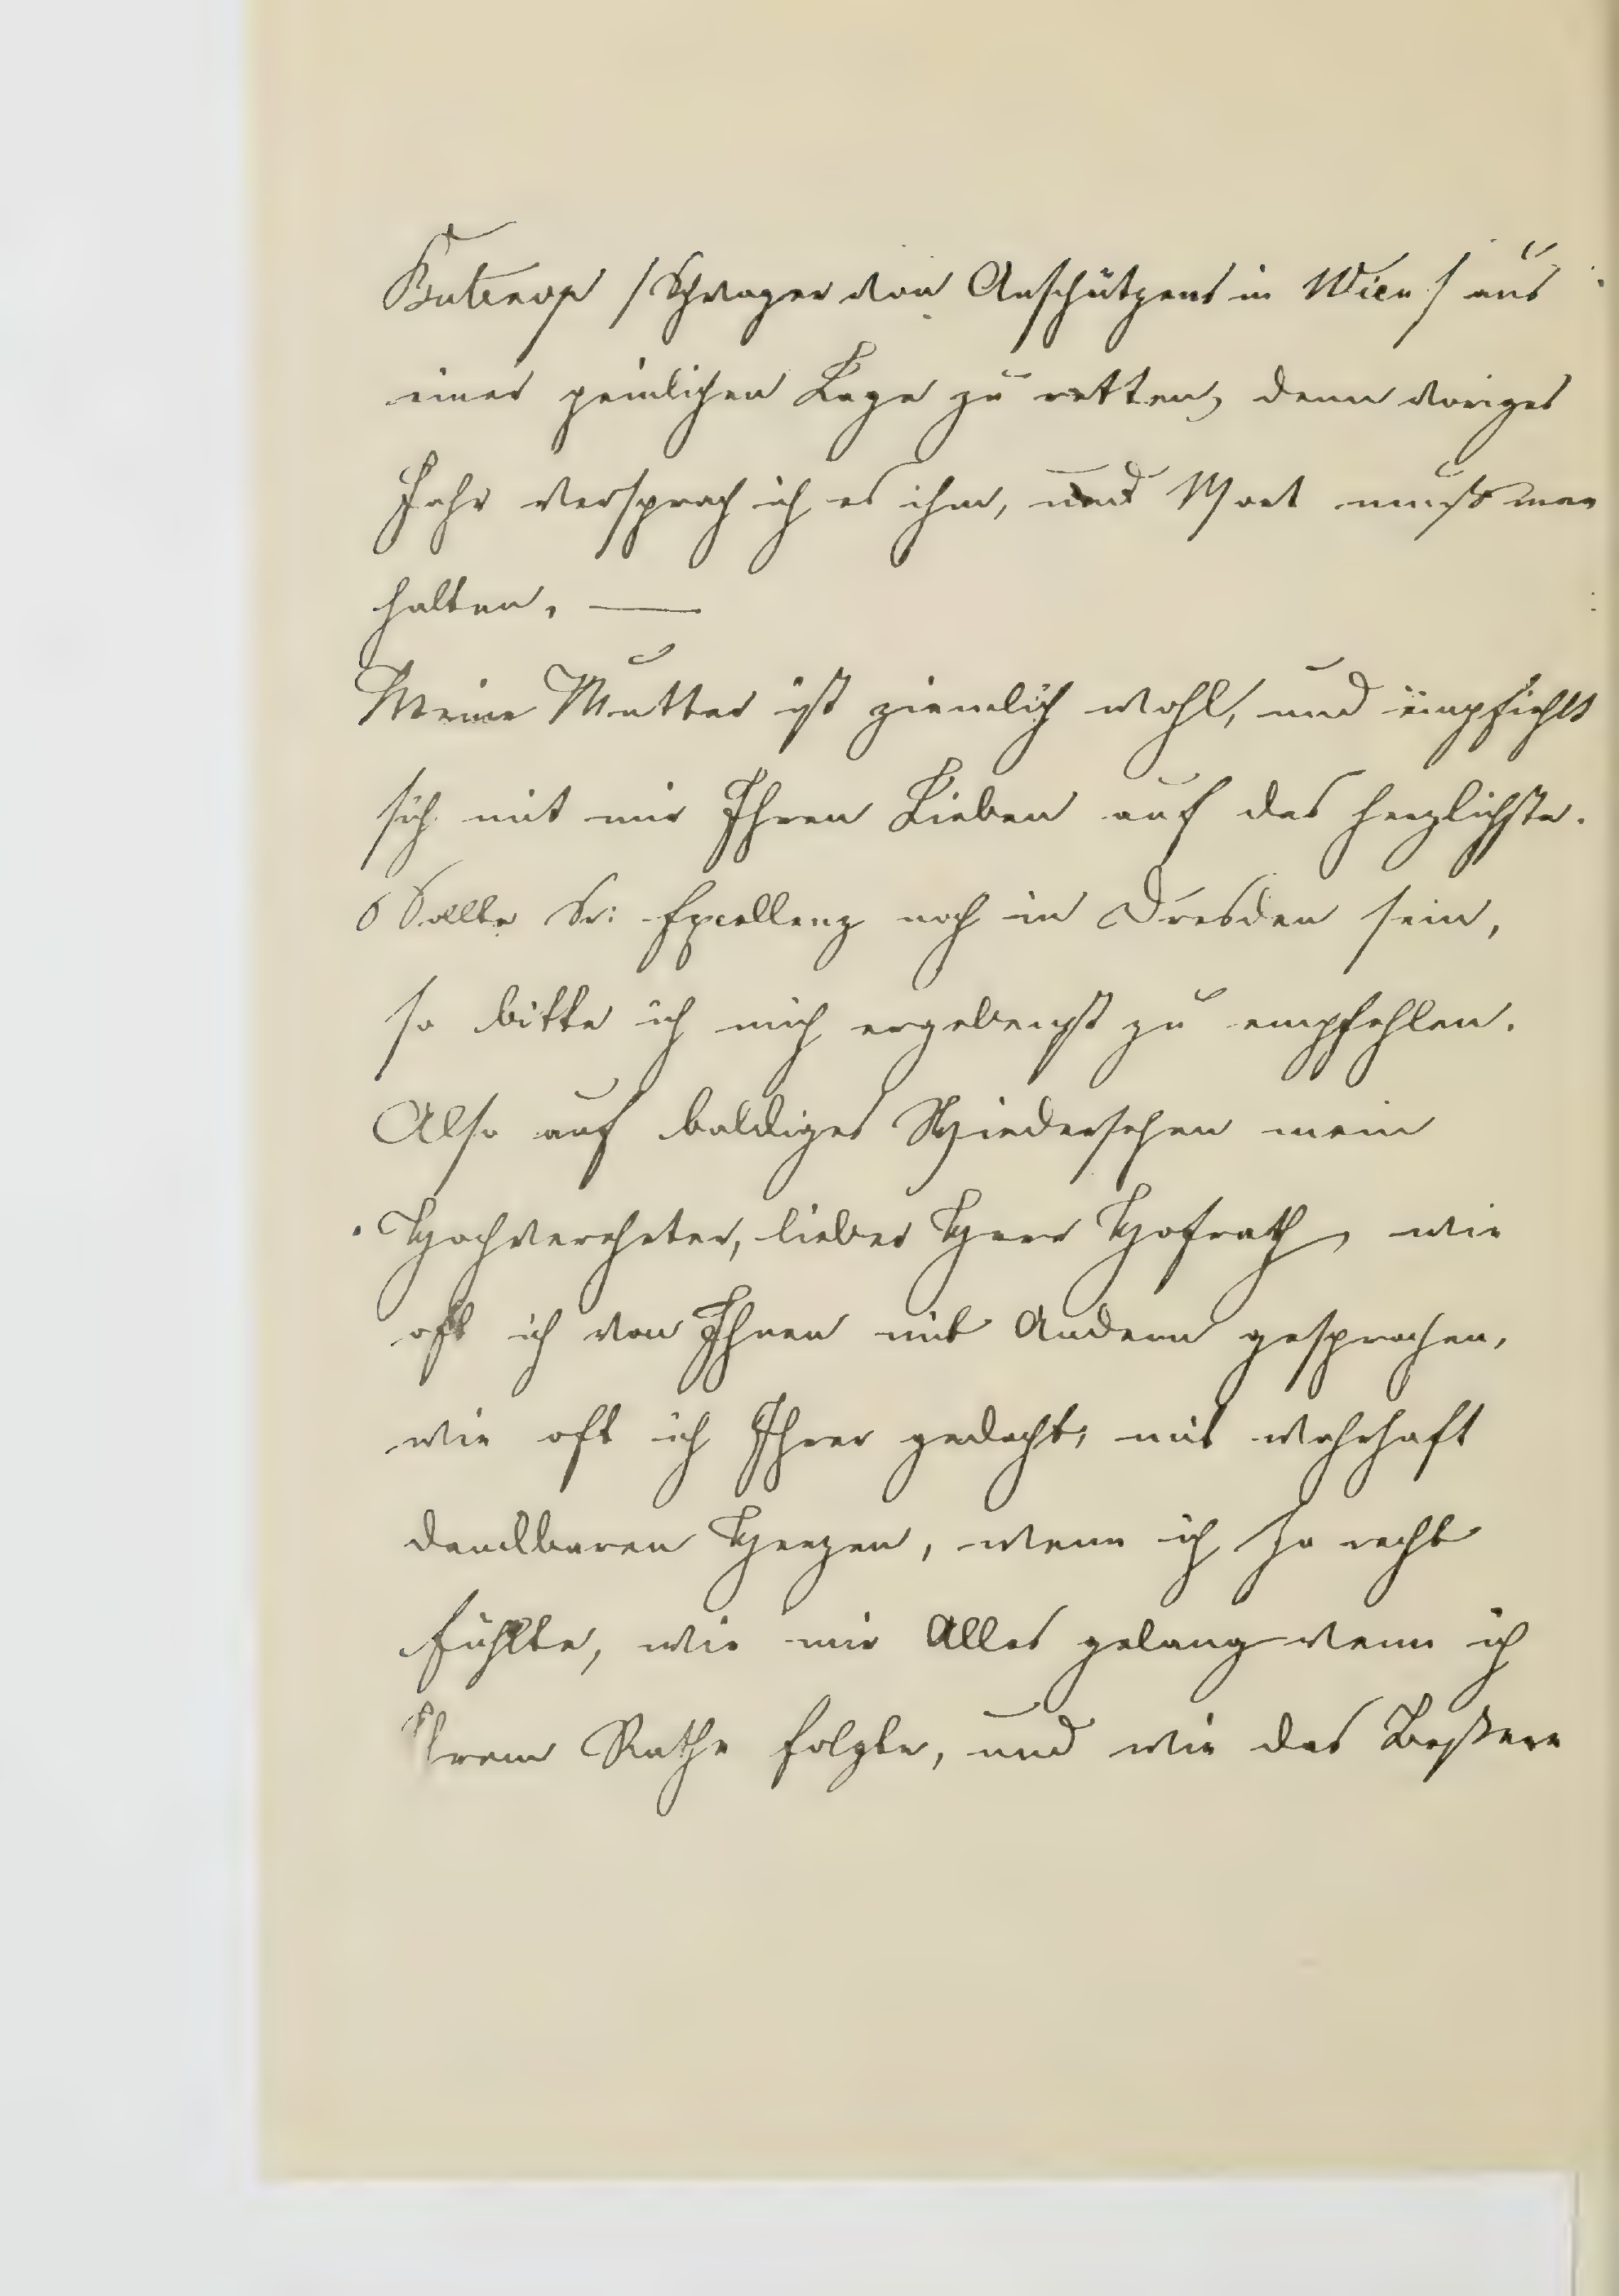 Butenop /Schwager von Anschützens in Wien/ aus
einer peinlichen Lage zu retten, denn voriges
Jahr versprach ich es ihm, und Wort muß man
halten. —
Meine Mutter ist ziemlich wohl, und empfiehlt
sich mit mir Ihren Lieben auf das herzlichste.
Sollte Sr: Excellenz noch in Dresden sein,
so bitte ich mich ergebenst zu empfehlen.
Also auf baldiges Wiedersehen mein
Hochverehrter, lieber Herr Hofrath, wie
oft ich von Ihnen mit Andern gesprochen,
wie oft ich Ihrer gedacht, mit wahrhaft
dankbaren Herzen, wenn ich so recht
fühlte, wie mir Alles gelang wenn ich
Ihrem Rathe folgte, und wie das Beßere